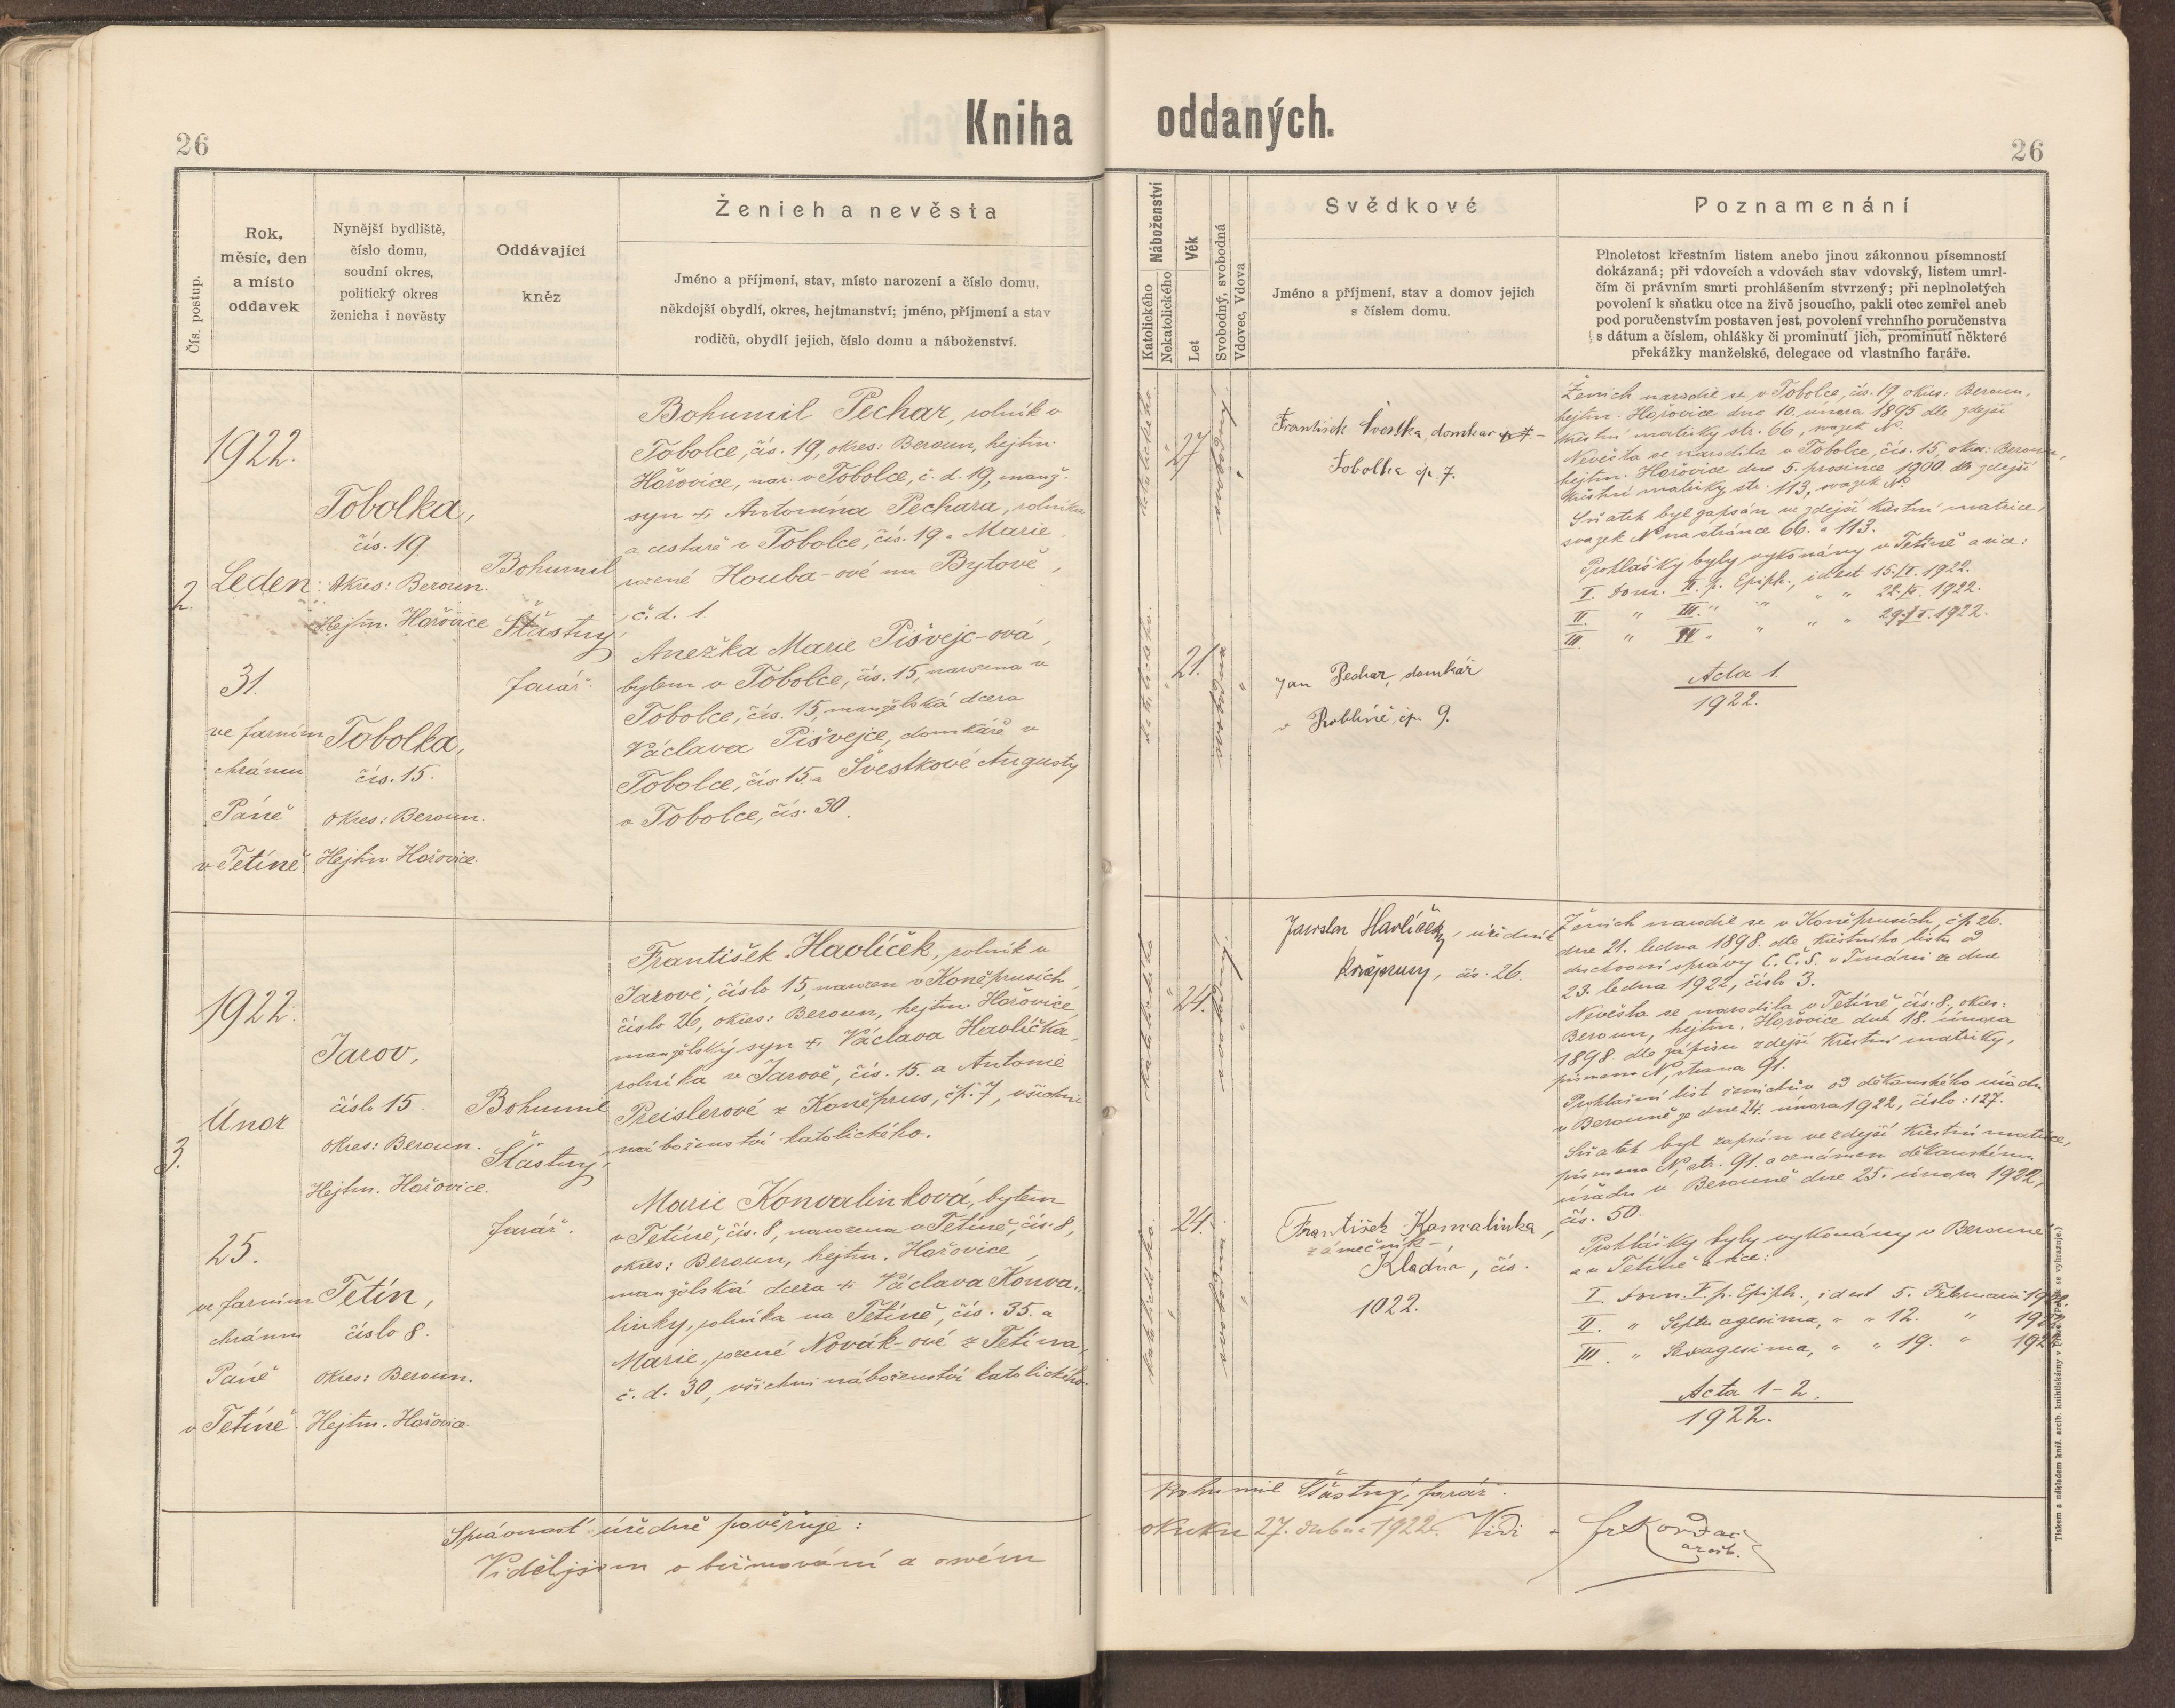 Kniha oddaných.
26
26
Čís. postup.
Rok,
měsíc, den
a místo
oddavek
Nynější bydliště,
číslo domu,
soudní okres,
politický okres
ženicha i nevěsty
Oddávající
kněz
Ženich a nevěsta
Jméno a příjmení, stav, místo narození a číslo domu,
někdejší obydlí, okres, hejtmanství; jméno, příjmení a stav
rodičů, obydlí jejich, číslo domu a náboženství.
Náboženství
Katolického
Nekatolického
Věk
Let
Svobodný, svobodná
Vdovec, Vdova
Svědkové
Jméno a příjmení, stav a domov jejich
s číslem domu.
Poznamenání
Plnoletost křestním listem anebo jinou zákonnou písemností
dokázaná; při vdovcích a vdovách stav vdovský, listem umrl-
čím či právním smrti prohlášením stvrzený; při neplnoletých
povolení k sňatku otce na živě jsoucího, pakli otec zemřel aneb
pod poručenstvím postaven jest, povolení vrchního poručenstva
s dátum a číslem, ohlášky či prominutí jich, prominutí některé
překážky manželské, delegace od vlastního faráře.
2.
1922.
Leden
31.
ve farním
chrámu
Páně
v Tetíně.
Tobolka,
čís. 19.
Okres: Beroun.
Hejtm. Hořovice
Tobolka,
čís. 15.
okres: Beroun.
Hejtm. Hořovice.
Bohumil
Šťastný,
farář.
Bohumil Pechar, rolník v
Tobolce, čís. 19, okres: Beroun, hejtm.
Hořovice, nar. v Tobolce, č. d. 19, manž.
syn † Antonína Pechara, rolníka
a cestaře v Tobolce, čís. 19 a Marie
rozené Houba-ové na Bytově,
č. d. 1.
Anežka Marie Pišvejc-ová,
bytem v Tobolce, čís. 15, narozena v
Tobolce, čís. 15, manželská dcera
Václava Pišvejce, domkáře v
Tobolce, čís. 15 a Švestkové Augusty
v Tobolce, čís. 30.
katolického
27
svobodný
katolického
21.
svobodná
František Švestka, domkar
Tobolka čp. 7.
Jan Pechar, domkář
v Roblíně, čp. 9.
Ženich narodil se v Tobolce, čís. 19, okres: Beroun,
hejtm. Hořovice dne 10. února 1895 dle zdejší
křestní matriky str. 66, svazek N.
Nevěsta se narodila v Tobolce, čís. 15, okres: Beroun,
hejtm. Hořovice dne 5. prosince 1900 dle zdejší
křestní matriky str. 113, svazek N.
Sňatek byl zapsán ve zdejší křestní matrice,
svazek N na stránce 66. a 113.
Prohlášky byly vykonány v Tetíně a sice:
I. Dom. II. p. Epiph., id est 15./I. 1922.
II. " III. " " " " 22./I. 1922.
III " IV. " " " " 29./I. 1922.
Acta 1.
1922.
3.
1922.
Únor
25.
ve farním
chrámu
Páně
v Tetíně.
Jarov,
číslo 15.
okres: Beroun.
Hejtm. Hořovice.
Tetín,
číslo 8.
okres: Beroun.
Hejtm. Hořovice.
Bohumil
Šťastný,
farář.
František Havlíček, rolník v
Jarově, číslo 15, narozen v Koněprusích,
číslo 26, okres: Beroun, hejtm. Hořovice,
manželský syn † Václava Havlíčka,
rolníka v Jarově, čís. 15. a Antonie
Preislerové z Koněprus, čp. 7, všichni
náboženství katolického.
Marie Konvalinková, bytem
v Tetíně, čís. 8, narozena v Tetíně, čís. 8,
okres: Beroun, hejtm. Hořovice,
manželská dcera † Václava Konva-
linky, rolníka na Tetíně, čís. 35. a
Marie, rozené Novák-ové z Tetína,
č. d. 30, všichni náboženství katolického.
katolického
24.
svobodný
katolického
24.
svobodná
Jaroslav Havlíček, úředník
Koněprusy, čís. 26.
František Konvalinka,
zámečník
Kladno, čís.
1022.
Ženich narodil se v Koněprusích, čp. 26.
dne 21. ledna 1898. dle křestního listu od
duchovní správy C. Č. S. v Tmáni ze dne
23. ledna 1922, číslo 3.
Nevěsta se narodila v Tetíně, čís. 8., okres:
Beroun, hejtm. Hořovice dne 18. února
1898. dle zápisu zdejší křestní matriky,
písmeno N, strana 91.
Prohlašní list ženichův od děkanského úřadu
v Berouně ze dne 24. února 1922, číslo: 127.
Sňatek byl zapsán ve zdejší křestní matrice,
písmeno N, str. 91. a oznámen děkanskému
úřadu v Berouně dne 25. února 1922,
čís. 50.
Prohlášky byly vykonány v Berouně
a v Tetíně a sice:
I. Dom. V. p. Epiph., id est 5. Februarii 1922.
II. " Septuagesima, " " 12. " 1922
III. " Sexagesima, " " 19. " 1922
Acta 1-2.
1922.
Správnosť úředně pověřuje: Bohumil Šťastný, farář.
Viděl jsem o biřmování a osvém
27. dubna 1922. Vidi
Fr Kordač
arcib.
Tiskem a nákladem kníž. arcib. knihtiskárny v Praze. (Patisk se vyhrazuje.)